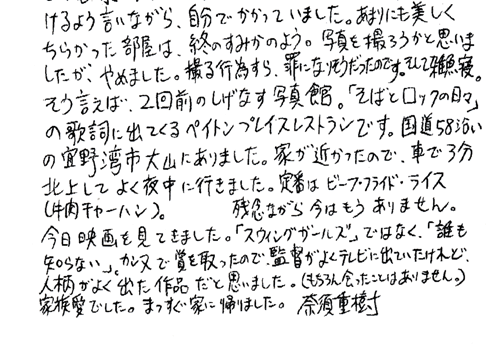 けるよう言いながら、自分でかかっていました。あまりにも美しく
ちらかった部屋は、終のすみかのよう。写真を撮ろうかと思いま
したが、やめました。撮る行為すら、罪になりそうだったのです。そして雑魚寝。
そう言えば、2回前のしげなす写真館。「そばとロックの日々」
の歌詞に出てくるペイトンプレイスレストランです。国道58沿い
の宜野湾市大山にありました。家が近かったので、車で3分
北上してよく夜中に行きました。定番はビーフ・フライド・ライス
(牛肉チャーハン)。 残念ながら今はもうありません。
今日映画を見てきました。「スウィングガールズ」ではなく、「誰も
知らない」。カンヌで賞を取ったので、監督がよくテレビに出ていたけれど、
人柄がよく出た作品だと思いました。(もちろん会ったことはありません。)
家族愛でした。まっすぐ家に帰りました。 奈須重樹